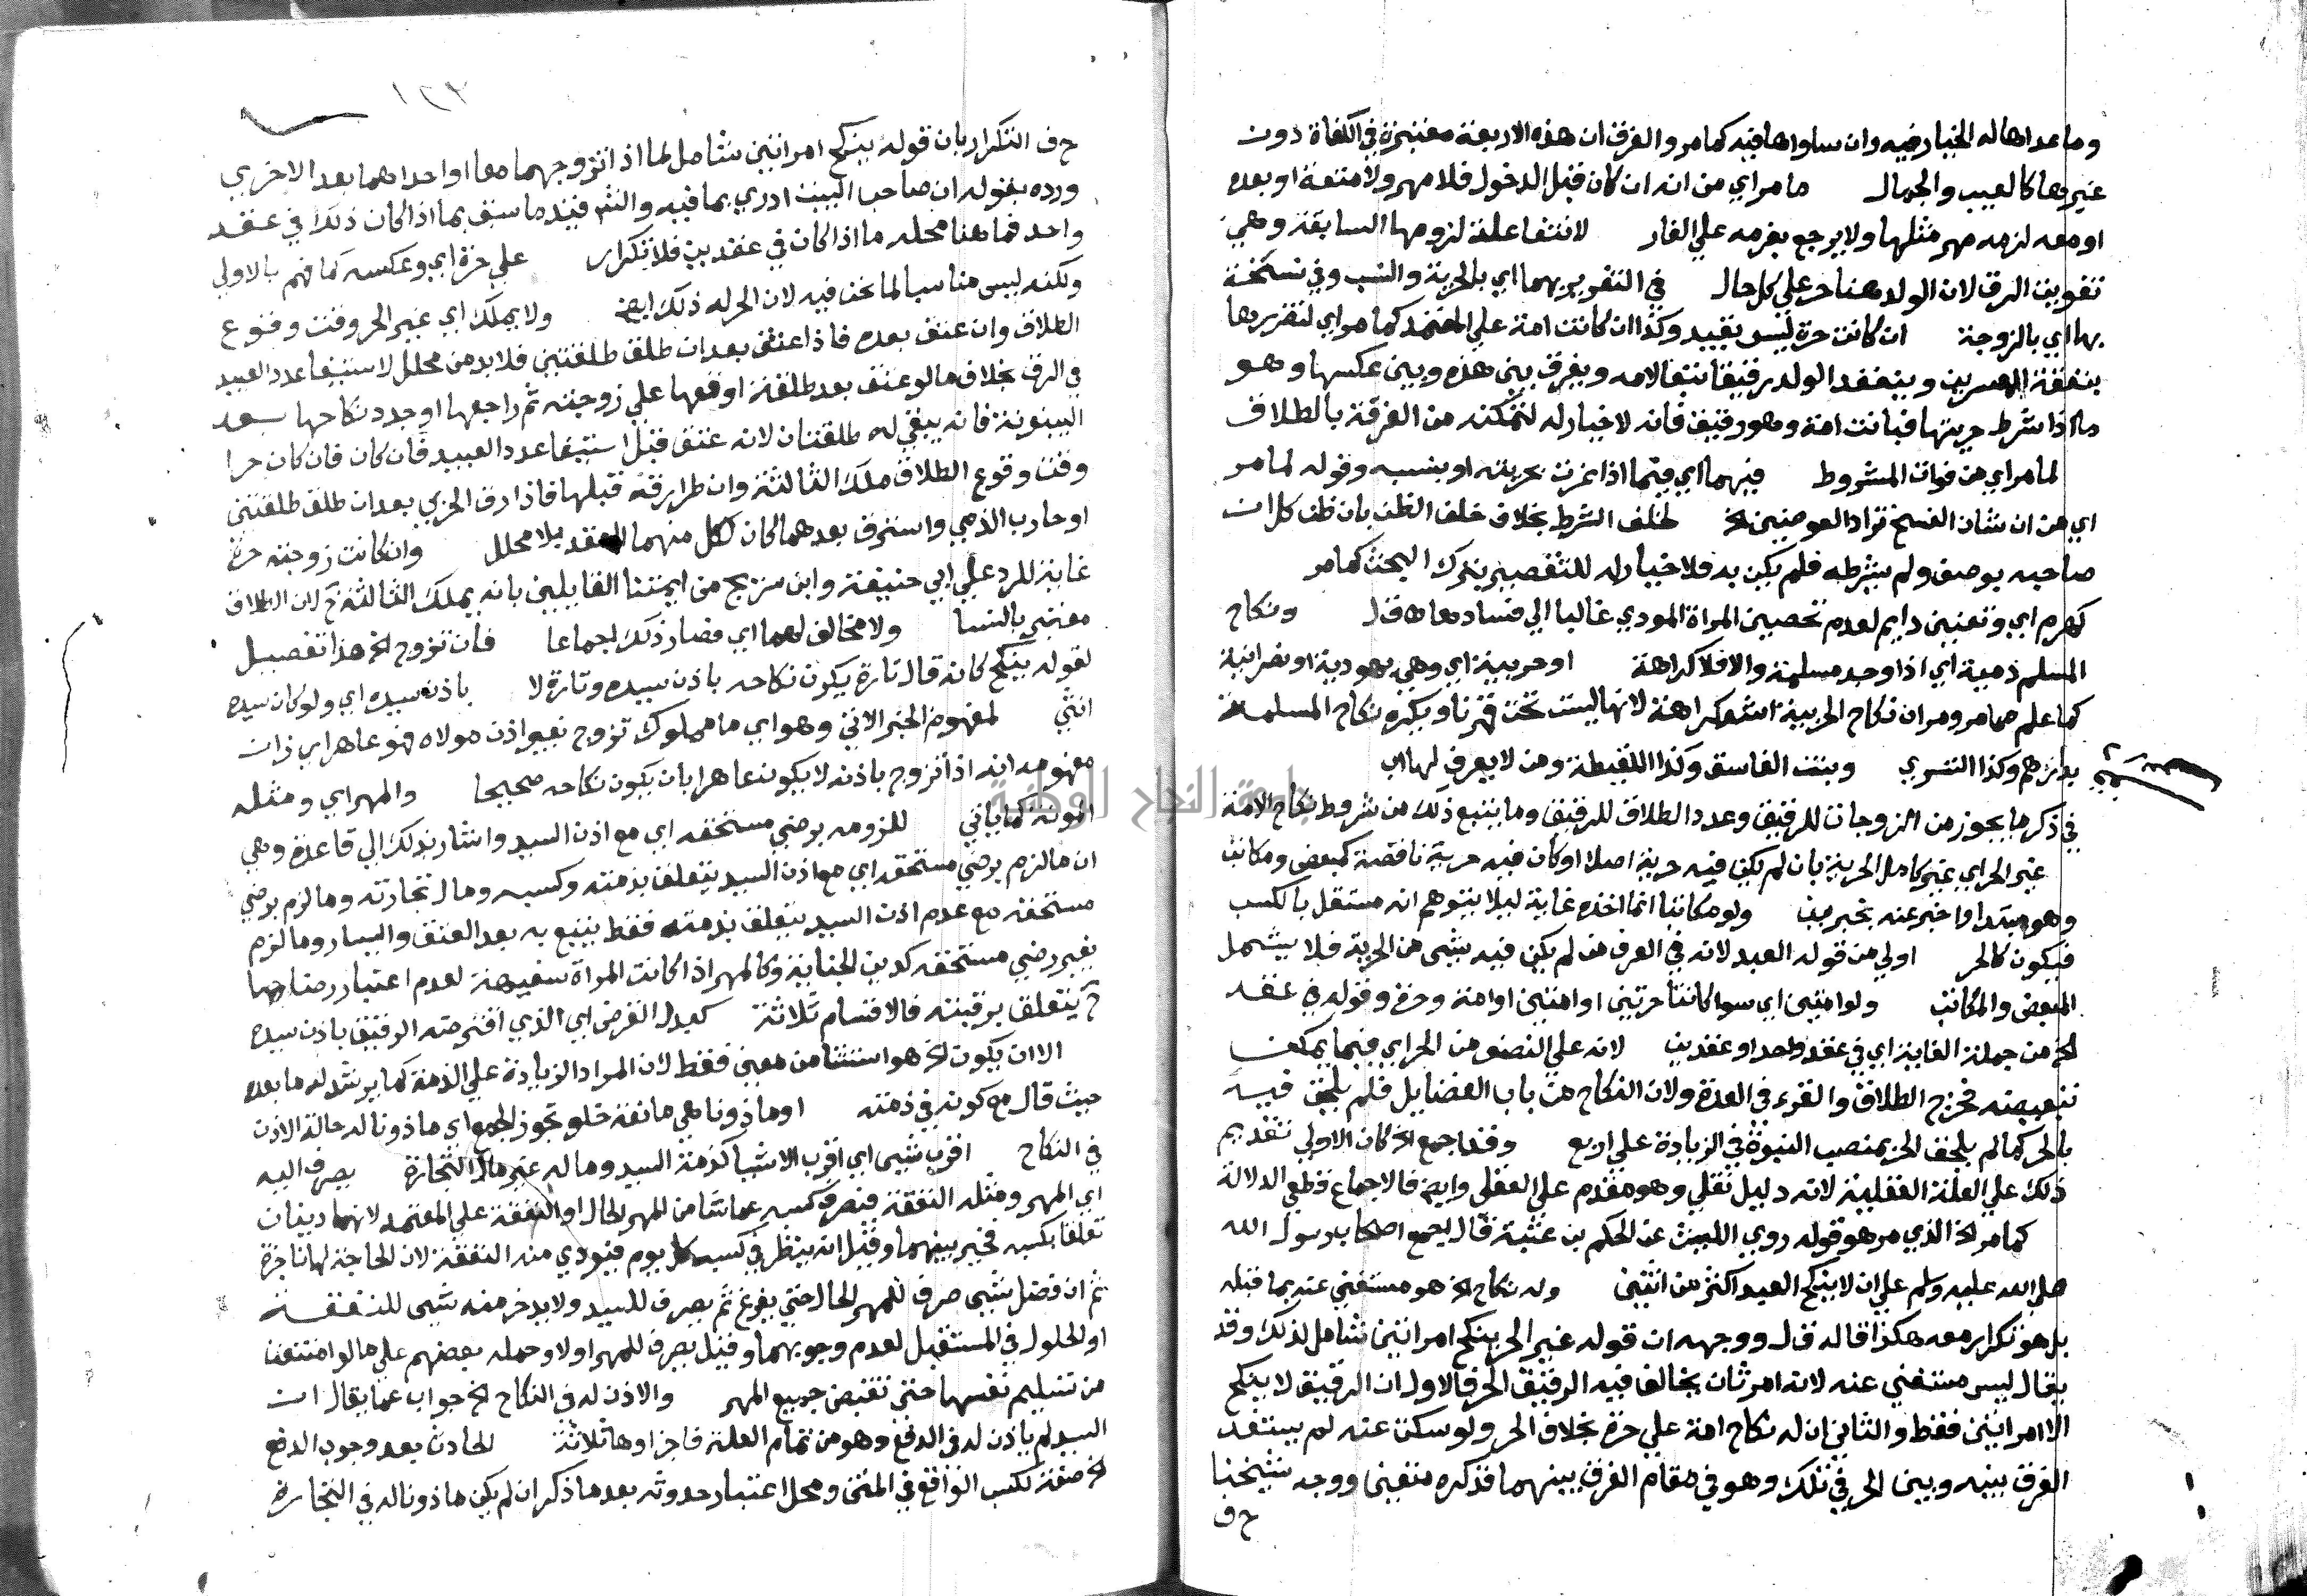 وما عداها له الخيار فيه وان ساواها فيه كما مر والفرق ان هذه الاربعة معتبرة في الكفاة دون
غيرها كالعيب والجمال ما مر اي من انه ان كان قبل الدخول فلا مهر ولا متعة او بعده
او معه لزمه مهر مثلها ولا يرجع بغرمه علي الغار لانتفا علة لزومها السابقة وهي
تفويت الرق لان الولد هنا حر علي كل حال في التغرير بهما اي بالحرية والنسب وفي نسخة
بها اي بالزوجة ان كانت حرة ليس بقيد وكذا ان كانت امة علي المعتمد كما مر اي لتضررها
بنفقة المعسرين وينعقد الولد رقيقا تبعا لامه ويفرق بين هذه وبين عكسها وهو
ما اذا شرط حريتها فبانت امة وهو رقيق فانه لا خيار له لتمكنه من الفرقة بالطلاق
لما مر اي من فوات المشروط فيهما اي فيما اذا غرت بحريته او بنسبه وقوله لما مر
اي من ان شان الفسخ تراد العوضين الخ لخلف الشرط بخلاف خلف الظن بان ظن كل ان
صاحبه بوصف ولم يشرطه فلم يكن به فلا خيار له للتقصير بترك البحث كما مر
كهرم اي وتعنين دايم لعدم تحصين المراة المودي غالبا الي فسادها ق ل ونكاح
المسلم ذمية اي اذا وجد مسلمة والا فلا كراهة او حربية اي وهي يهودية او نصرانية
كما علم مما مر ومر ان نكاح الحربية اشد كراهة لانها ليست تحت قهرنا ويكره نكاح المسلمة
بدارهم وكذا التسري وبنت الفاسق وكذا اللقيطة ومن لا يعرف لها اب
في ذكر ما يجوز من الزوجات للرقيق وعدد الطلاق للرقيق وما يتبع ذلك من شروط نكاح الامة
غير الحر اي غير كامل الحرية بان لم يكن فيه حرية اصلا او كان فيه حرية ناقصة كمبعض ومكاتب
وهو مبتدا اخبر عنه بخبرين ولو مكاتبا انما اخذه غاية ليلا يتوهم انه مستقل بالكسب
فيكون كالحر اولي من قوله العبد لانه في العرف من لم يكن فيه شي من الحرية فلا يشمل
المبعض والمكاتب ولو امتين اي سوا كانتا حرتين او امتين او امة وحرة وقوله في عقد
الخ من جملة الغاية اي في عقد واحد او عقدين لانه علي النصف من الحر اي فيما يمكن
تبعيضه فخرج الطلاق والقرء في العدة ولان النكاح من باب الفضايل فلم يلحق فيه
بالحر كما لم يلحق الحر بمنصب النبوة في الزيادة علي اربع وقد اجمع الخ كان الاولي تقديم
ذلك علي العلة العقلية لانه دليل نقلي وهو مقدم علي العقلي وايض فالاجماع قطعي الدلالة
كما مر الخ الذي مر هو قوله روي الليث عن الحكم بن عتبة قال اجمع اصحاب رسول الله
صلي الله عليه وسلم علي ان لا ينكح العبد اكثر من اثنتين وله نكاح الخ هو مستغني عنه بما قبله
بل هو تكرار معه هكذا قاله ق ل ووجهه ان قوله غير الحر ينكح امراتين شامل لذلك وقد
يقال ليس مستغني عنه لانه امر ثان يخالف فيه الرقيق الحر فالاول ان الرقيق لا ينكح
الا امراتين فقط والثاني ان له نكاح امة علي حرة بخلاف الحر ولو سكت عنه لم يستفد
الفرق بينه وبين الحر في تلك وهو في مقام الفرق بينهما فذكره متعين ووجه شيخنا
ح ف
ح ف التكرار بان قوله ينكح امراتين شامل لما اذا تزوجهما معا او احداهما بعد الاخري
ورده بقوله ان صاحب البيت ادري بما فيه والش قيد ما سبق بما اذا كان ذلك في عقد
واحد فما هنا محله ما اذا كان في عقدين فلا تكرار علي حرة اي وعكسه كما فهم بالاولي
ولكنه ليس مناسبا لما نحن فيه لان الحر له ذلك ايض ولا يملك اي غير الحر وقت وقوع
الطلاق وان عتق بعده فاذا عتق بعد ان طلق طلقتين فلا بد من محلل لاستيفا عدد العبيد
في الرق بخلاف ما لو عتق بعد طلقة اوقعها علي زوجته ثم راجعها او جدد نكاحها بعد
البينونة فانه يبقي له طلقتان لانه عتق قبل استيفا عدد العبيد فان كان فان كان حرا
وقت وقوع الطلاق ملك الثالثة وان طرا رقه قبلها فاذا رق الحربي بعد ان طلق طلقتين
او حارب الذمي واسترق بعدهما كان لكل منهما العقد بلا محلل وان كانت زوجته حرة
غاية للرد علي ابي حنيفة وابن سريج من ايمتنا القايلين بانه يملك الثالثة ح لان الطلاق
معتبر بالنسا ولا مخالف لهما اي فصار ذلك اجماعا فان تزوج الخ هذا تفصيل
لقوله ينكح كانه قال تارة يكون نكاحه باذن سيده وتارة لا باذن سيده اي ولو كان سيده
انثي لمفهوم الخبر الاتي وهو ايما مملوك تزوج بغير اذن مولاه فهو عاهر اي زان
مفهومه انه اذا تزوج باذنه لا يكون عاهرا بان يكون نكاحه صحيحا والمهر اي ومثله
المونة كما ياتي للزومه برضي مستحقه اي مع اذن السيد واشار بذلك الي قاعدة وهي
ان ما لزم برضي مستحقه اي مع اذن السيد يتعلق بذمته وكسبه ومال تجارته وما لزم برضي
مستحقه مع عدم اذن السيد يتعلق بذمته فقط يتبع به بعد العتق واليسار وما لزم
بغير رضي مستحقه كدين الجناية وكالمهر اذا كانت المراة سفيهة لعدم اعتبار رضاها
ح يتعلق برقبته فالاقسام ثلاثة كبدل القرض اي الذي اقترضه الرقيق باذن سيده
الا ان يكون الخ هو استثنا من معين فقط لان المراد الزيادة علي الذمة كما يرشد له ما بعده
حيث قال مع كونه في ذمته او ماذونا هي مانعة خلو تجوز الجمع اي ماذونا له حالة الاذن
في النكاح اقرب شيي اي اقرب الاشيا كذمة السيد وماله غير مال التجارة يصرف اليه
اي المهر ومثله النفقة فتصرف كسبه عما شا من المهر الحال او النفقة علي المعتمد لانهما دينان
تعلقا بكسبه فخير بينهما وقيل انه ينظر في كسبه كل يوم فيودي منه النفقة لان الحاجة لها ناجزة
ثم ان فضل شيي صرف للمهر الحال حتي يفرغ ثم يصرف للسيد ولا يدخر منه شيي للنفقة
او الحلول في المستقبل لعدم وجوبهما وقيل يصرف للمهر اولا وحمله بعضهم علي ما لو امتنعت
من تسليم نفسها حتي تقبض جميع المهر والاذن له في النكاح الخ جواب عما يقال ان
السيد لم ياذن له في الدفع وهو من تمام العلة فاجزاوها ثلاثة الحادث بعد وجوب الدفع
الخ صفة لكسب الواقع في المتن ومحل اعتبار حدوثه بعد ما ذكر ان لم يكن ماذونا له في التجارة